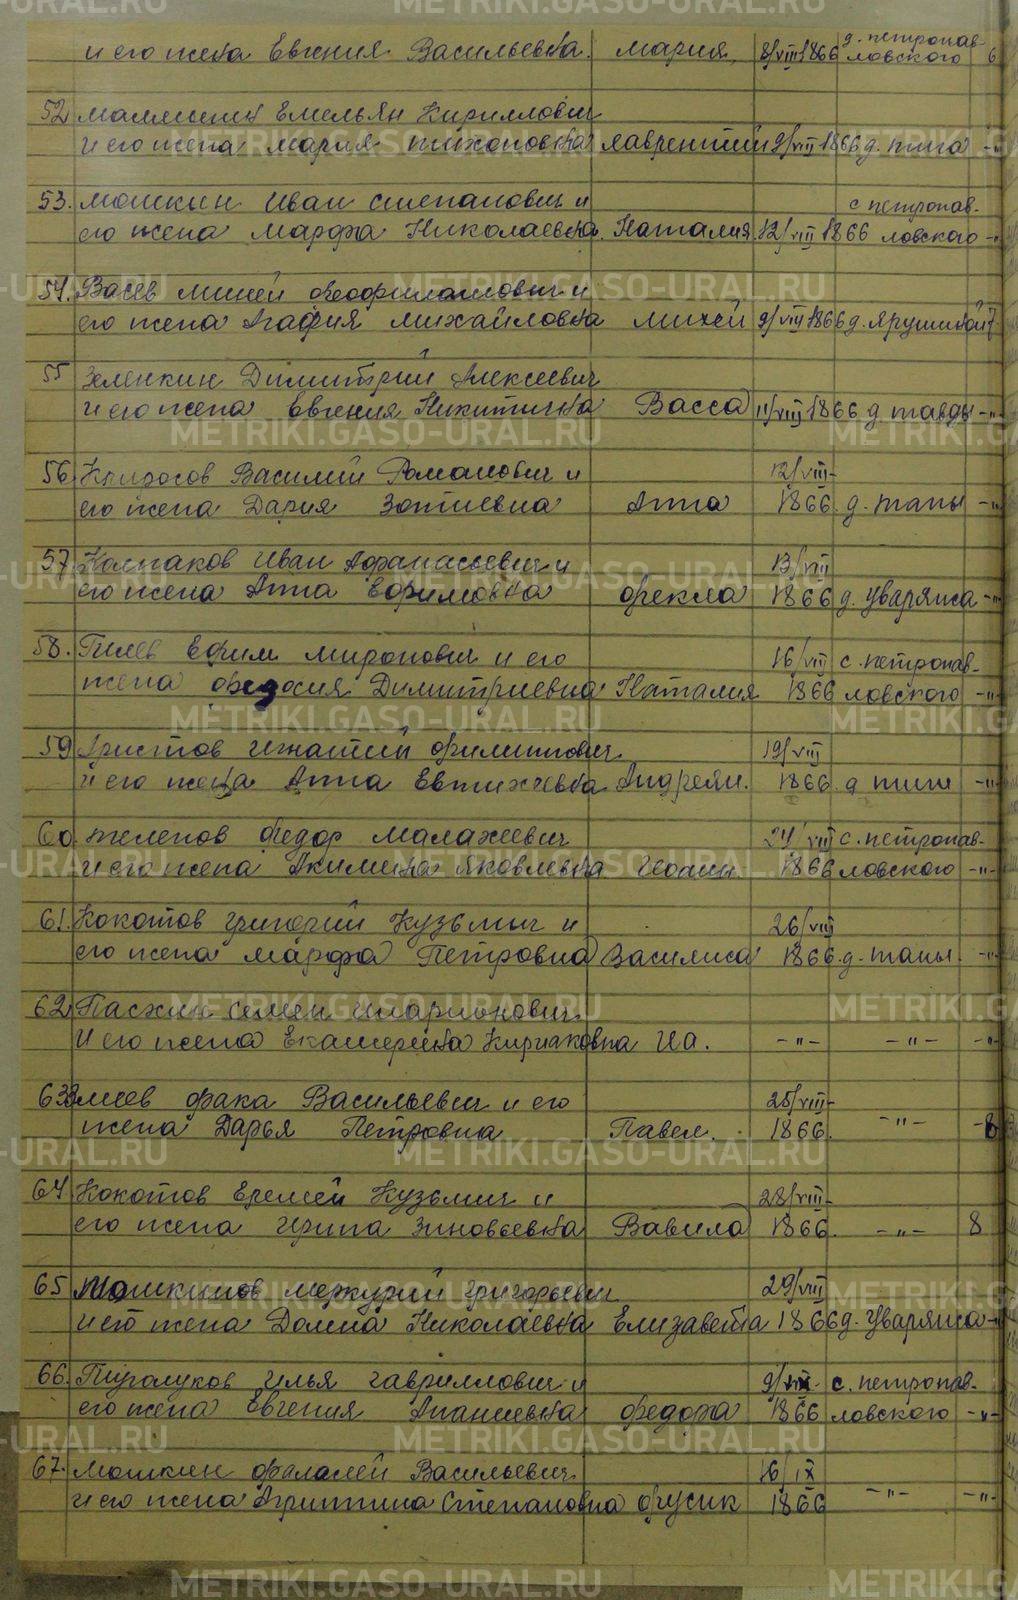 и его жена Евгения Васильевна. Мария, 8/VIII 1866 д. петропавловского 6
52 Мамышев Емельян Кириллович
и его жена Мария Тихоновна Лаврентий 9/VIII 1866 д. тига -"-
53. Мошкин Иван Степанович и с петропав-
его жена Марфа Николаевна. Наталия 12/VIII 1866 ловского -"-
54. Васев Михей Феофилактович и
его жена Агафия Михайловна Михей 9/VIII 1866 д. Ярушиной 7
55 Зеленкин Димитрий Алексеевич
и его жена Евгения Никитична Васса 11/VIII 1866 д. тавды -"-
56. Василий Романович и 12/VIII-
его жена Дария Зотиевна Анна 1866. д. тапы -"-
57. Колпаков Иван Афанасьевич и 13/VIII
его жена Анна Ефимовна Фекла 1866 д. Уваряжа -"-
58. Пилев Ефим Миронович и его 16/VIII с. петропав-
жена Федосия Димитриевна Наталия 1866 ловского -"-
59 Аристов Игнатий Филиппович 19/VIII
и его жена Анна Евтихиевна Андреян. 1866. д тиги -"-
60. Телепов Федор Малахеевич 24/VIII с. петропав-
и его жена Акилина Яковлевна Иоанн 1866 ловского -"-
61. Кокотов Григорий Кузьмич и 26/VIII
его жена Марфа Петровна Василиса 1866. д. тапы -"-
62 Пасхин Семен Иларионович
и его жена Екатерина Кириаковна Иа. -"- -"- -"-
63. Змеев Фока Васильевич и его 25/VIII-
жена Дарья Петровна Павел. 1866. -"- -8
64 Кокотов Еремей Кузьмич и 28/VIII-
его жена Ирина Зиновьевна Вавила 1866. -"- 8
65 Мошкинов Меркурий Григорьевич 29/VIII
и его жена Домна Николаевна Елизавета 1866 д. Уваряжа -"-
66. Пуголуков Илья Гаврилович и 9/IX- с. петропав-
его жена Евгения Ананиевна Федора 1866 ловского -"-
67. Мошкин Фалалей Васильевич 16/IX
и его жена Агриппина Степановна Фусик 1866 -"- -"-
METRIKI.GASO-URAL.RU